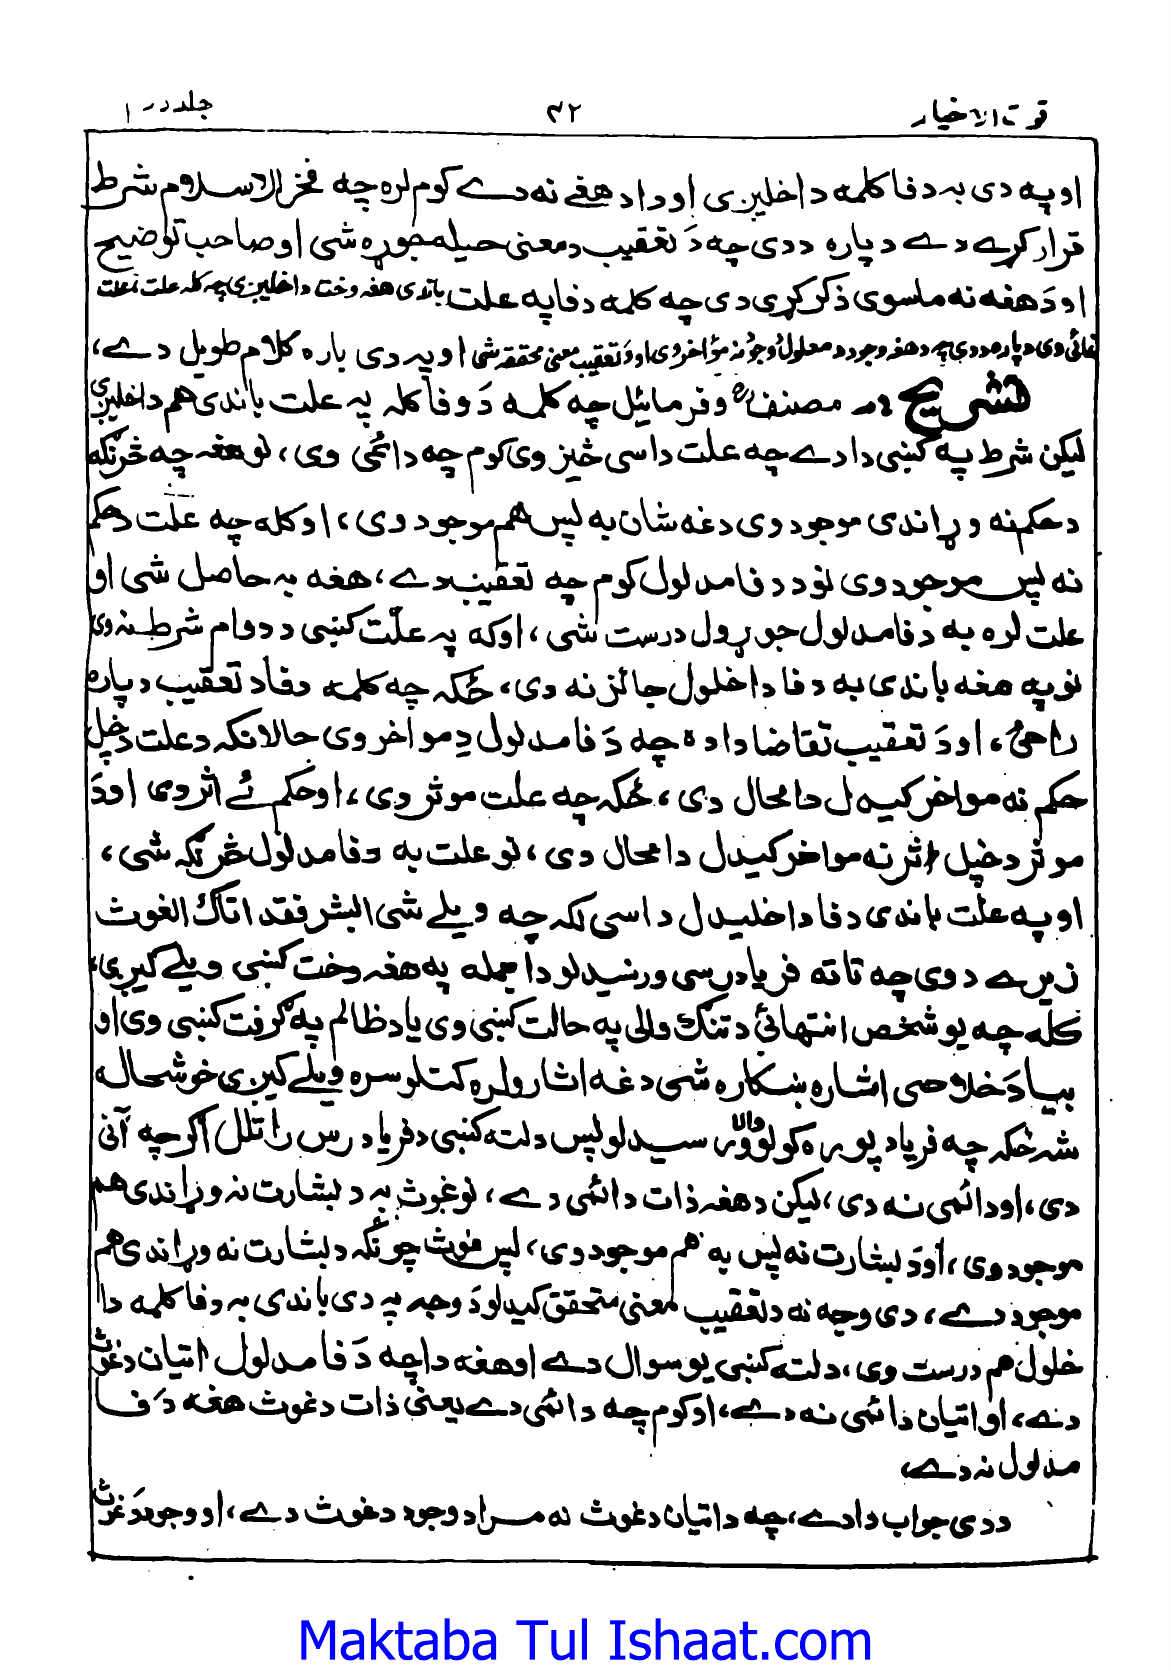 قوت الاخیار ۴۲ جلد در ۱
او په دی به د فا کلمه داخلیږی او داد هغے نه دے کوم لره چه فخر الاسلام شرط
قرار کړے دے د پاره ددی چه دَ تعقیب د معنی حیله جوړه شی او صاحب توضیح
او دَ هغه نه ماسوی ذکر کړی دی چه کلمه د فا په علت باندی هغه وخت داخلیږی چه کله علت علت
غائی وی د پاره ددی چه د هغه وجود د معلول وجود نه مؤاخر وی او دَ تعقیب معنی محققه شی او په دی باره کلام طویل دے،
تشریح :۔ مصنفؒ وفرمائیل چه کلمه دَ فا کله په علت باندی هم داخلیږی
لیکن شرط په کښی دا دے چه علت داسی څیز وی کوم چه دائمی وی، نو هغه چه څرنګه
د حکم نه وړاندی موجود وی دغه شان به پس هم موجود وی، او کله چه علت د حکم
نه پس موجود وی نو د فا مدلول کوم چه تعقیب دے، هغه به حاصل شی او
علت لره به د فا مدلول جوړول درست شی، او که په علّت کښی د دوام شرط نه وی
نو په هغه باندی به د فا داخلول جائز نه دی، ځکه چه کلمه د فا د تعقیب د پاره
راځی، او دَ تعقیب تقاضا دا ده چه دَ فا مدلول دِ مواخر وی حالانکه د علت د خپل
حکم نه مواخر کیدل دا محال دی، ځکه چه علت موثر دی، او حکم ئے اثر وی او دَ
موثر د خپل اثر نه مواخر کیدل دا محال دی، نو علت به د فا مدلول څرنګه شی،
او په علت باندی د فا داخلیدل داسی لکه چه ویلے شی البشر فقد اتاك الغوث
زیرے دوی چه تاته فریادرسی ورسیدلو دا جمله په هغه وخت کښی ویلے کیږی،
کله چه یو شخص انتهائی د تنګ والی په حالت کښی وی یا د ظالم په ګرفت کښی وی او
بیا دَ خلاصی اشاره ښکاره شی دغه اشارو لره کتلو سره ویلے کیږی خوشحاله
شه ځکه چه فریاد پوره کولو والا را ورسیدلو پس دلته کښی د فریاد رس راتلل اګرچه آنی
دی، او دائمی نه دی، لیکن د هغه ذات دائمی دے، نو غوث به د بشارت نه وړاندی هم
موجود وی، او دَ بشارت نه پس به هم موجود وی، پس غوث چونکه د بشارت نه وړاندی هم
موجود دے، دی وجه نه د تعقیب معنی متحقق کیدلو دَ وجه په دی باندی به د فا کلمه دا
خلول هم درست وی، دلته کښی یو سوال دے او هغه دا چه دَ فا مدلول اتیان د غوث
دے، او اتیان دائمی نه دے، او کوم چه دائمی دے یعنی ذات د غوث هغه دَ فا
مدلول نه دے،
ددی جواب دا دے، چه د اتیان د غوث نه مراد وجود د غوث دے، او وجود دَ غوث
Maktaba Tul Ishaat.com